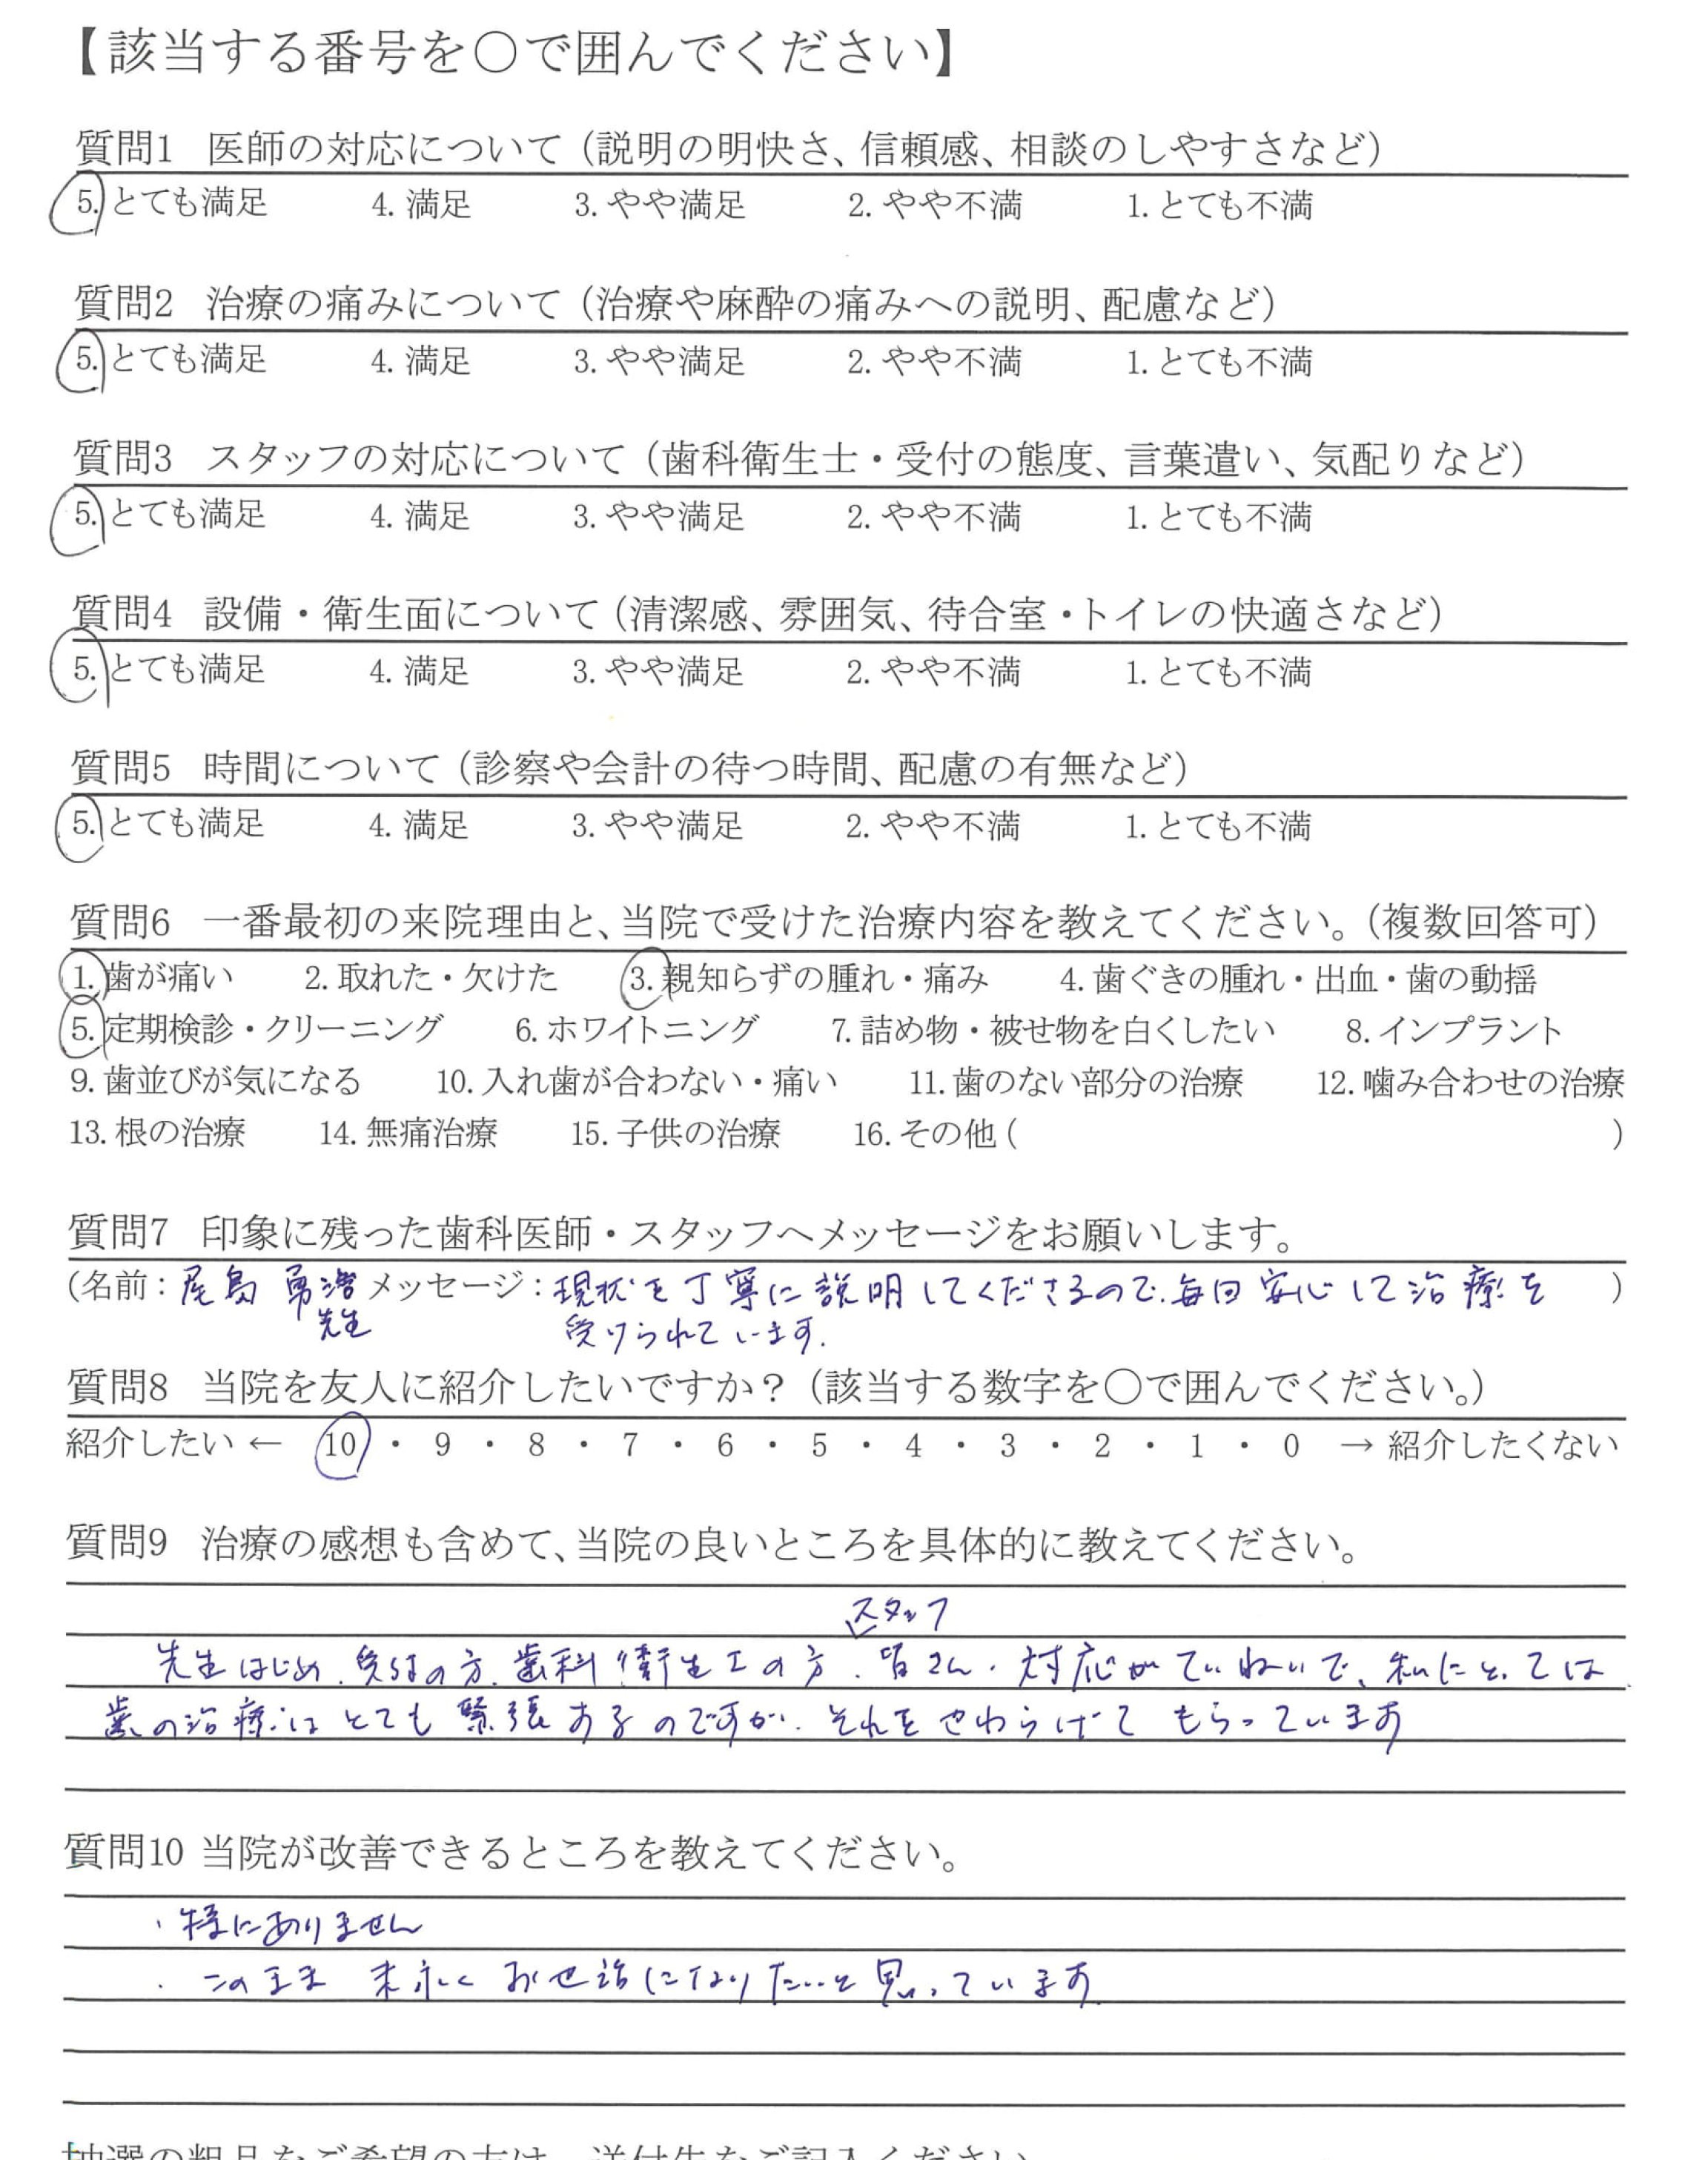 【該当する番号を○で囲んでください】
質問1 医師の対応について（説明の明快さ、信頼感、相談のしやすさなど）
5.とても満足 4.満足 3.やや満足 2.やや不満 1.とても不満
質問2 治療の痛みについて（治療や麻酔の痛みへの説明、配慮など）
5.とても満足 4.満足 3.やや満足 2.やや不満 1.とても不満
質問3 スタッフの対応について（歯科衛生士・受付の態度、言葉遣い、気配りなど）
5.とても満足 4.満足 3.やや満足 2.やや不満 1.とても不満
質問4 設備・衛生面について（清潔感、雰囲気、待合室・トイレの快適さなど）
5.とても満足 4.満足 3.やや満足 2.やや不満 1.とても不満
質問5 時間について（診察や会計の待つ時間、配慮の有無など）
5.とても満足 4.満足 3.やや満足 2.やや不満 1.とても不満
質問6 一番最初の来院理由と、当院で受けた治療内容を教えてください。（複数回答可）
1.歯が痛い 2.取れた・欠けた 3.親知らずの腫れ・痛み 4.歯ぐきの腫れ・出血・歯の動揺
5.定期検診・クリーニング 6.ホワイトニング 7.詰め物・被せ物を白くしたい 8.インプラント
9.歯並びが気になる 10.入れ歯が合わない・痛い 11.歯のない部分の治療 12.噛み合わせの治療
13.根の治療 14.無痛治療 15.子供の治療 16.その他（ ）
質問7 印象に残った歯科医師・スタッフへメッセージをお願いします。
（名前：尾島 勇 メッセージ：現状を丁寧に説明してくださるので、毎回安心して治療を ）
先生 受けられています.
質問8 当院を友人に紹介したいですか？（該当する数字を○で囲んでください。）
紹介したい ← 10 ・ 9 ・ 8 ・ 7 ・ 6 ・ 5 ・ 4 ・ 3 ・ 2 ・ 1 ・ 0 → 紹介したくない
質問9 治療の感想も含めて、当院の良いところを具体的に教えてください。
スタッフ
先生はじめ、受付の方、歯科衛生士の方、皆さん、対応がていねいで、私にとっては
歯の治療はとても緊張するのですが、それをやわらげてもらっています
質問10 当院が改善できるところを教えてください。
・特にありません
・このまま 末永くお世話になりたいと思っています.
抽選の粗品をご希望の方は、送付先をご記入ください。